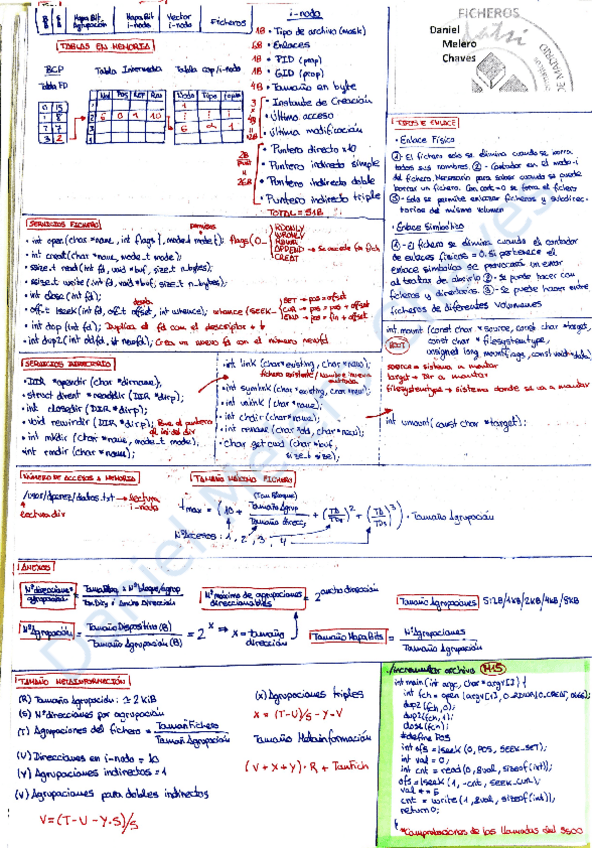 Mapa Bit Agrupación
Mapa Bit i-nodo
Vector i-nodo
Ficheros
TABLAS EN MEMORIA
BCP
Tabla FD
Tabla Intermedia
Nod Pos Ref Rw
6 0 1 10
0 15
1 8
2 7
3 2
Nodo Tipo
i-nodo
1B • Tipo de archivo (mask)
6B • Enlaces
1B • PID (prop)
1B • GID (prop)
4B • Tamaño en byte
• Instante de Creación
• Último acceso
• Última modificación
• Puntero directo x10
• Puntero indirecto simple
• Puntero indirecto doble
• Puntero indirecto triple
TOTAL = 51B
FICHEROS
Daniel
Melero
Chaves
TIPOS DE ENLACE
• Enlace Físico
① - El fichero solo se elimina cuando se borra
todos sus nombres. ② - Contador en el nodo-i
del fichero. Necesario para saber cuando se puede
borrar un fichero. Con cont=0 se borra el fichero
③ - Solo se permite enlazar ficheros y subdirec-
torios del mismo volumen
• Enlace Simbólico
① - El fichero se elimina cuando el contador
de enlaces físicos = 0. Si
enlace simbólico se producirá un error
al tratar de abrirlo ② - Se puede hacer con
ficheros y directorios. ③ - Se puede hacer entre
ficheros de diferentes volúmenes
int mount (const char *source, const char *target,
const char *filesystemtype,
unsigned long mountflags, const void *data);
ROOT
source = sistema a montar
target = Dir a montar
filesystemtype → sistema donde se va a montar
int umount (const char *target);
SERVICIOS FICHERO
permisos
• int open (char *name, int flags, mode_t mode); flags (O_
RDONLY
WRONLY
RDWR
APPEND → Se accede fin fich
CREAT
• int creat (char *name, mode_t mode);
• ssize_t read (int fd, void *buf, size_t n_bytes);
• ssize_t write (int fd, void *buf, size_t n_bytes);
• int close (int fd);
desde
• off_t lseek (int fd, off_t offset, int whence); whence (SEEK_
SET → pos = offset
CUR → pos = pos + offset
END → pos = fin + offset
• int dup (int fd); Duplica el fd con el descriptor + b
• int dup2 (int oldfd, int newfd); Crea un nuevo fd con el número newfd
SERVICIOS DIRECTORIO
• DIR *opendir (char *dirname);
• struct dirent *readdir (DIR *dirp);
• int closedir (DIR *dirp);
• void rewindir (DIR *dirp); Pone el puntero
al ini del dir
• int mkdir (char *name, mode_t mode);
• int rmdir (char *name);
• int link (char *existing, char *new);
fichero existente / Nombre nueva entrada
• int symlink (char *existing, char *new);
• int unlink (char *name);
• int chdir (char *name);
• int rename (char *old, char *new);
• char getcwd (char *buf,
size_t size);
NÚMERO DE ACCESOS A MEMORIA
/usr/dperez/datos.txt → lectura i-nodo
lectura dir
TAMAÑO MÁXIMO FICHERO
Tmax = (10 + Tamaño Agrup / Tamaño direcc + (TB/TD)² + (TB/TD)³) · Tamaño Agrupación
NºAccesos: 1, 2, 3, 4
ANEXOS
Nº direcciones agrupación = Tamaño Bloq x Nº bloques/agrup / Tam Dir o Ancho Dirección
Nº máximo de agrupaciones direccionables = 2^ancho dirección
Tamaño Agrupaciones 512B/1KB/2KB/4KB/8KB
Nº Agrupación = Tamaño Dispositivo (B) / Tamaño Agrupación (B) = 2^x ⇒ x = tamaño dirección
Tamaño Mapa Bits = Nº Agrupaciones / Tamaño Agrupación
TAMAÑO METAINFORMACIÓN
(R) Tamaño Agrupación: 2 KiB
(S) Nº direcciones por agrupación
(T) Agrupaciones del fichero = Tamaño Fichero / Tamaño Agrupación
(U) Direcciones en i-nodo = 10
(Y) Agrupaciones indirectos = 1
(V) Agrupaciones para dobles indirectos
V = (T-U-Y·S)/S
(X) Agrupaciones triples
X = (T-U)/S - Y - V
Tamaño Metainformación
(V + X + Y) · R + Tam Fich
./incrementar archivo M15
int main (int argc, char *argv[]) {
int fch = open (argv[1], O_RDWR|O_CREAT, 0666);
dup2 (fch, 0);
dup2 (fch, 1);
close (fch);
#define POS
int ofs = lseek (0, POS, SEEK_SET);
int val = 0;
int cnt = read (0, &val, sizeof(int));
ofs = lseek (1, -cnt, SEEK_CUR);
val += 5
cnt = write (1, &val, sizeof(int));
return 0;
}
*Comprobaciones de las llamadas del SSOO